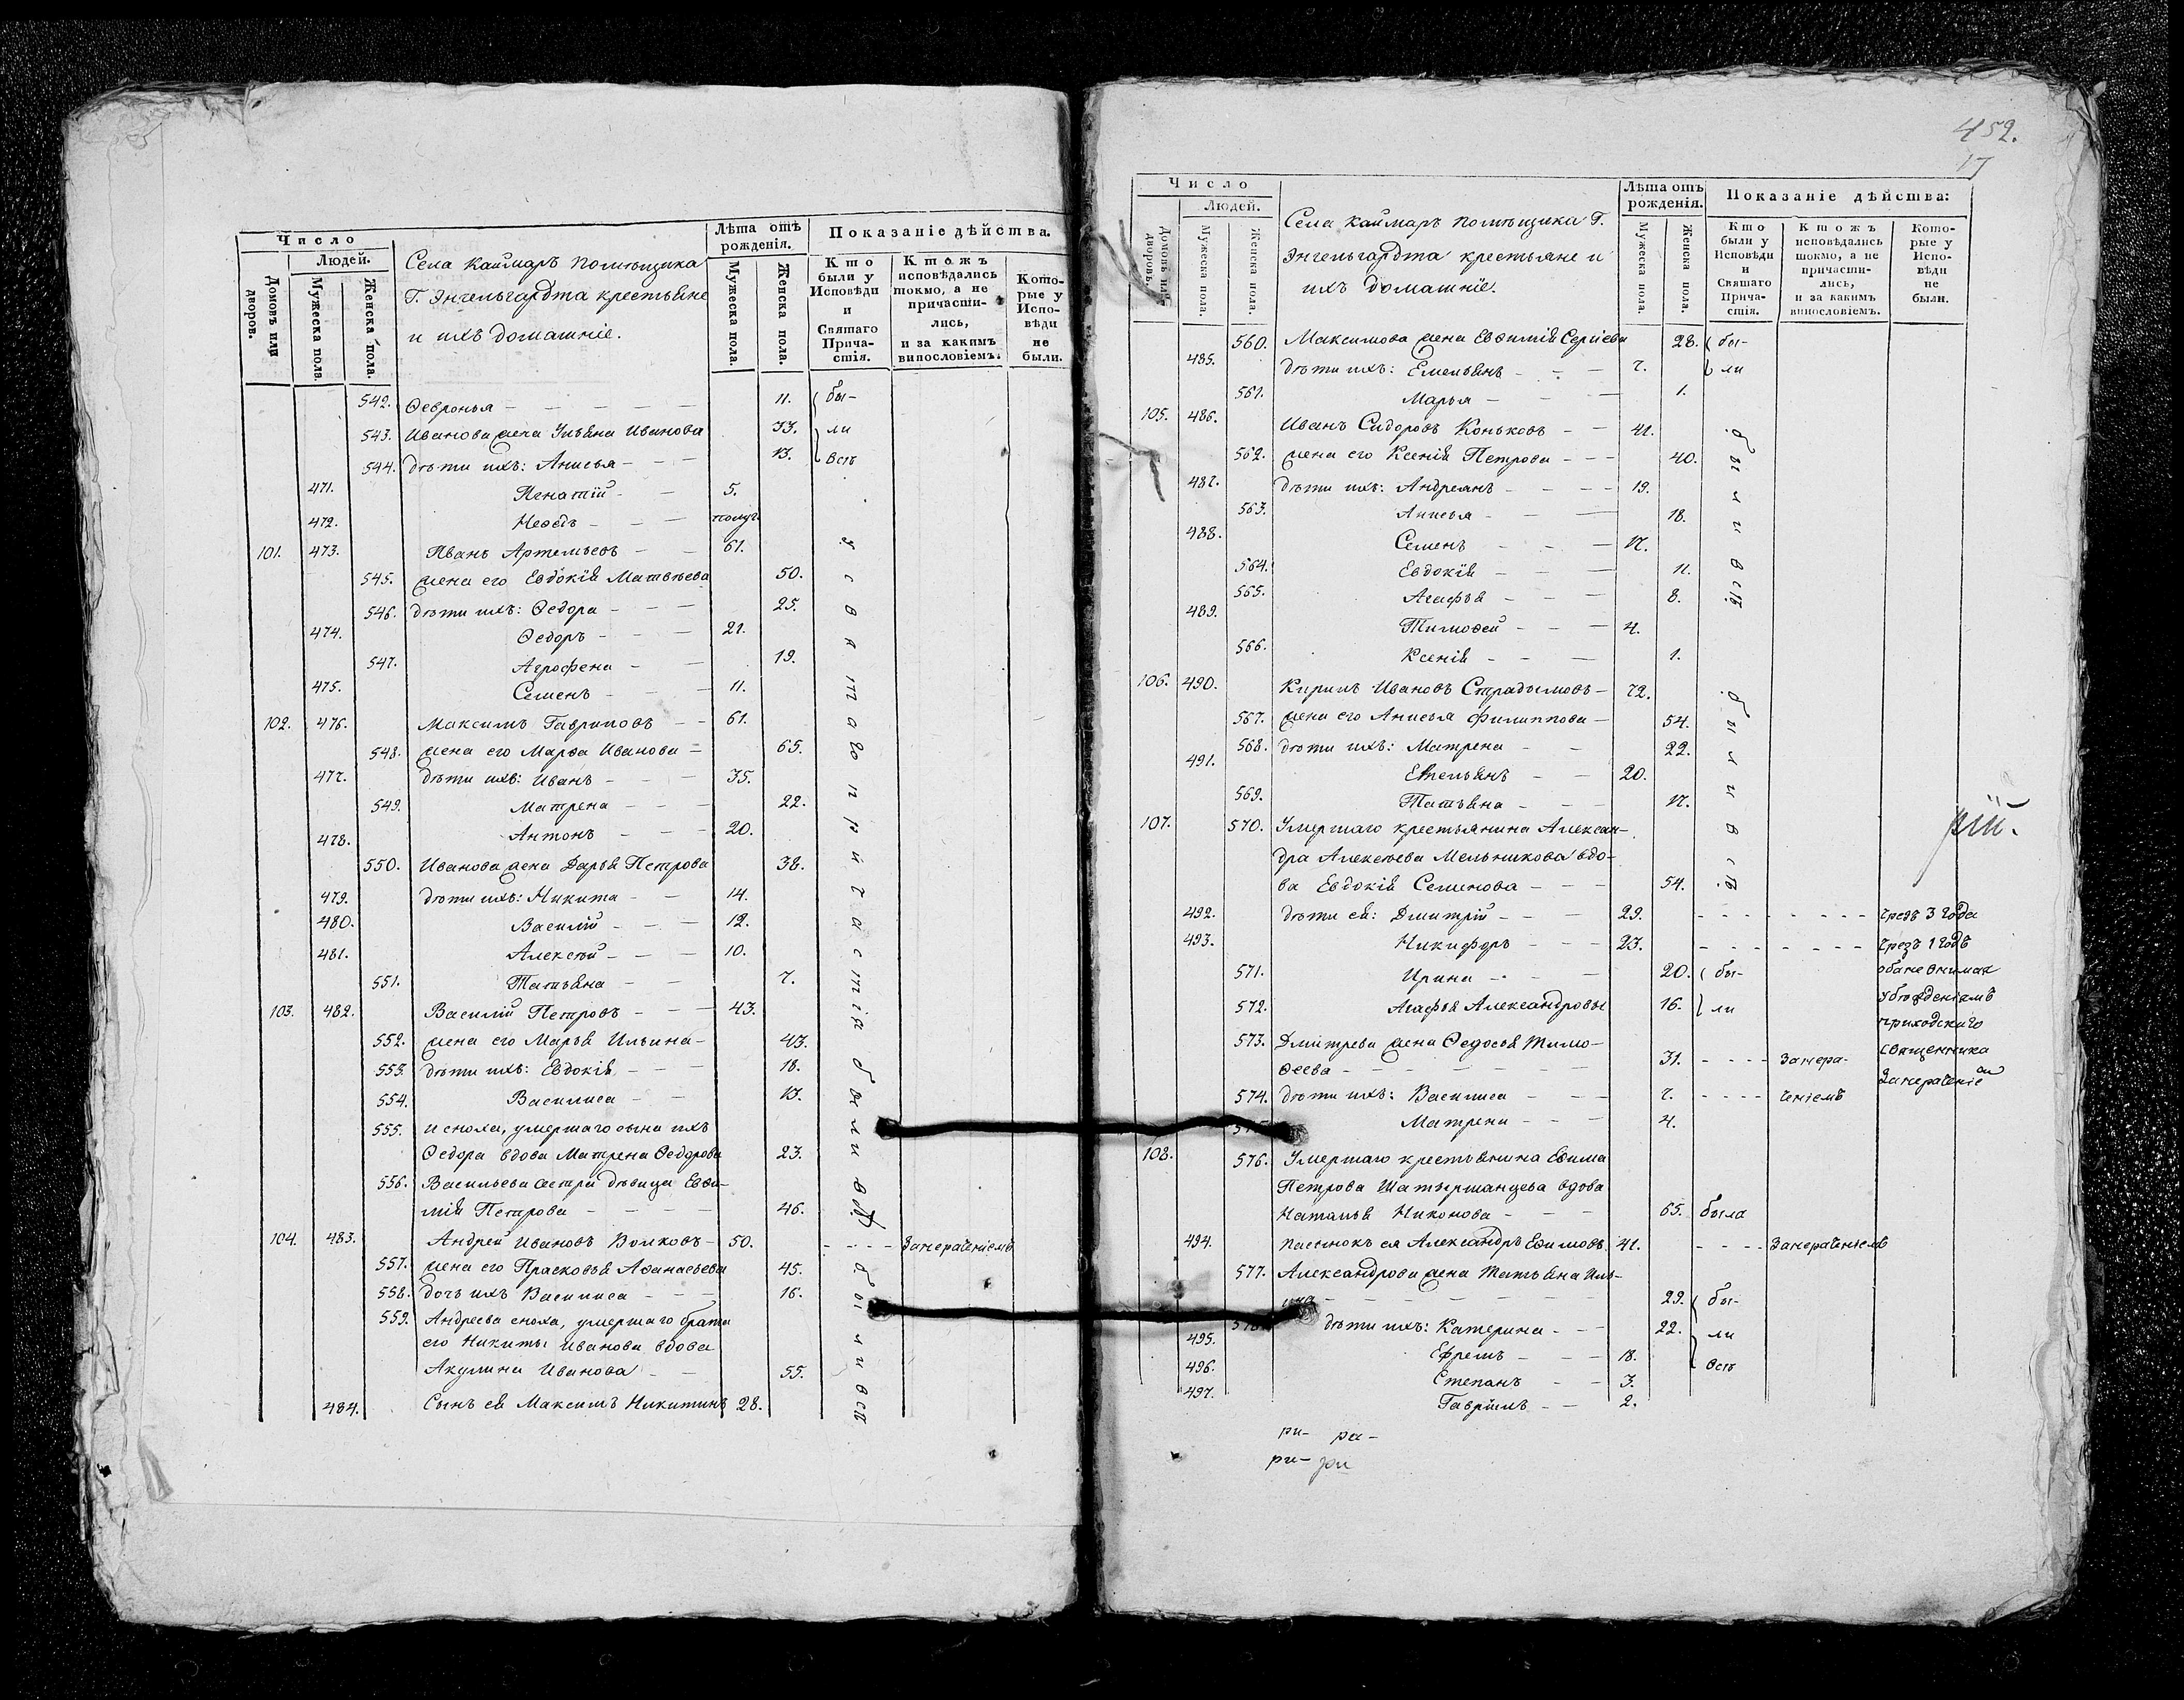 Число
Людей.
Домовъ или дворовъ.
Мужеска пола.
Женска пола.
Села Каймаръ помѣщика
Г. Энгельгардта крестьяне
и ихъ домашніе.
Лѣта отъ рожденія.
Мужеска пола.
Женска пола.
Показаніе дѣйства.
Кто были у Исповѣди и Святаго Причастія.
Ктожъ исповѣдались токмо, а не причастились, и за какимъ винословіемъ.
Которые у Исповѣди не были.
542. Ѳевронья - - - - - 11. бы-
543. Иванова жена Ульяна Иванова 33. ли
544. дѣти ихъ: Анисья - - - 13. всѣ
471. Игнатій - - 5.
472. Меѳедъ - - - полуг.
101. 473. Иванъ Артемьевъ - - 61.
545. жена его Евдокія Матвѣева 50.
546. дѣти ихъ: Ѳедора - - - 25.
474. Ѳедоръ - - - 21.
547. Агрофена - - 19.
475. Семенъ - - - 11.
102. 476. Максимъ Гавриловъ - - 61.
548. жена его Марѳа Иванова - 65.
477. дѣти ихъ: Иванъ - - - 35.
549. Матрена - - - 22.
478. Антонъ - - - 20.
550. Иванова жена Дарья Петрова 38.
479. дѣти ихъ: Никита - - 14.
480. Василій - - - 12.
481. Алексѣй - - - 10.
551. Татьяна - - 7.
103. 482. Василій Петровъ - - - 43.
552. жена его Марья Ильина - 43.
553. дѣти ихъ: Евдокія - - - 18.
554. Василиса - - 13.
555. и сноха, умершаго сына ихъ
Ѳедора вдова Матрена Ѳедорова 23.
556. Васильева сестра дѣвица Евѳи-
мія Петрова - - - - 46.
у Святаго причастія были всѣ
104. 483. Андрей Ивановъ Волковъ - 50. - - - - Запераченіемъ
557. жена его Прасковья Аѳанасьева 45.
558. дочь ихъ Василиса - - - 16.
559. Андреева сноха, умершаго брата
его Никиты Иванова вдова
Акулина Иванова - - 55.
484. Сынъ ея Максимъ Никитинъ 28.
были всѣ
452.
17
Число
Людей.
Домовъ или дворовъ.
Мужеска пола.
Женска пола.
Села Каймаръ помѣщика Г.
Энгельгардта крестьяне и
ихъ домашніе.
Лѣта отъ рожденія.
Мужеска пола.
Женска пола.
Показаніе дѣйства:
Кто были у Исповѣди и Святаго Причастія.
Ктожъ исповѣдались токмо, а не причастились, и за какимъ винословіемъ.
Которые у Исповѣди не были.
560. Максимова жена Евѳимія Сергіева 28. бы-
485. дѣти ихъ: Емельянъ - - - 7. ли
561. Марья - - - 1.
105. 486. Иванъ Сидоровъ Коньковъ - - 41.
562. жена его Ксенія Петрова - - - 40.
487. дѣти ихъ: Андреянъ - - - - 19.
563. Анисья - - - 18.
488. Семенъ - - - 17.
564. Евдокія - - - 11.
565. Агафья - - - 8.
489. Тимоѳей - - - 4.
566. Ксенія - - - 1.
были всѣ
106. 490. Кирилъ Ивановъ Страдымовъ - 72.
567. жена его Анисья Филиппова - 54.
568. дѣти ихъ: Матрена - - 22.
491. Емельянъ - - 20.
569. Татьяна - - - 17.
107. 570. Умершаго крестьянина Алексан-
дра Алексѣева Мельникова вдо-
ва Евдокія Семенова - - - 54.
были всѣ
492. дѣти ея: Дмитрій - - - 29. - - - - - - - - чрезъ 3 года
493. Никифоръ - - - 23. - - - - - - - чрезъ 1 годъ
571. Ирина - - - 20. бы- оба не внимая
572. Агафья Александровы 16. ли убѣжденіямъ
приходскаго
573. Дмитрева жена Ѳедосья Тимо- священника
ѳеева - - - - - - 31. - - - - Запера-
574. дѣти ихъ: Василиса - - - 7. - - - - ченіемъ
Матрена - - - 4.
108. 576. Умершаго крестьянина Евѳима
Петрова Шатыршанцева вдова
Наталья Никонова - - - 65. была
494. пасынокъ ея Александръ Евѳимовъ 41. - - - - Запераченіемъ
577. Александрова жена Татьяна Иль-
ина - - - - - - 29. бы-
дѣти ихъ: Катерина - - - 22. ли
495. Ефремъ - - - 18. всѣ
496. Степанъ - - 3.
497. Гаврiилъ - - 2.
ри- ра-
ри- ри